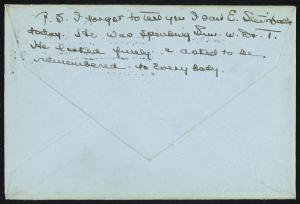 P.S. I forgot to tell you I saw E.
today. He was spending Sun. w.
He looked finely & asked to be
remembered to everybody.